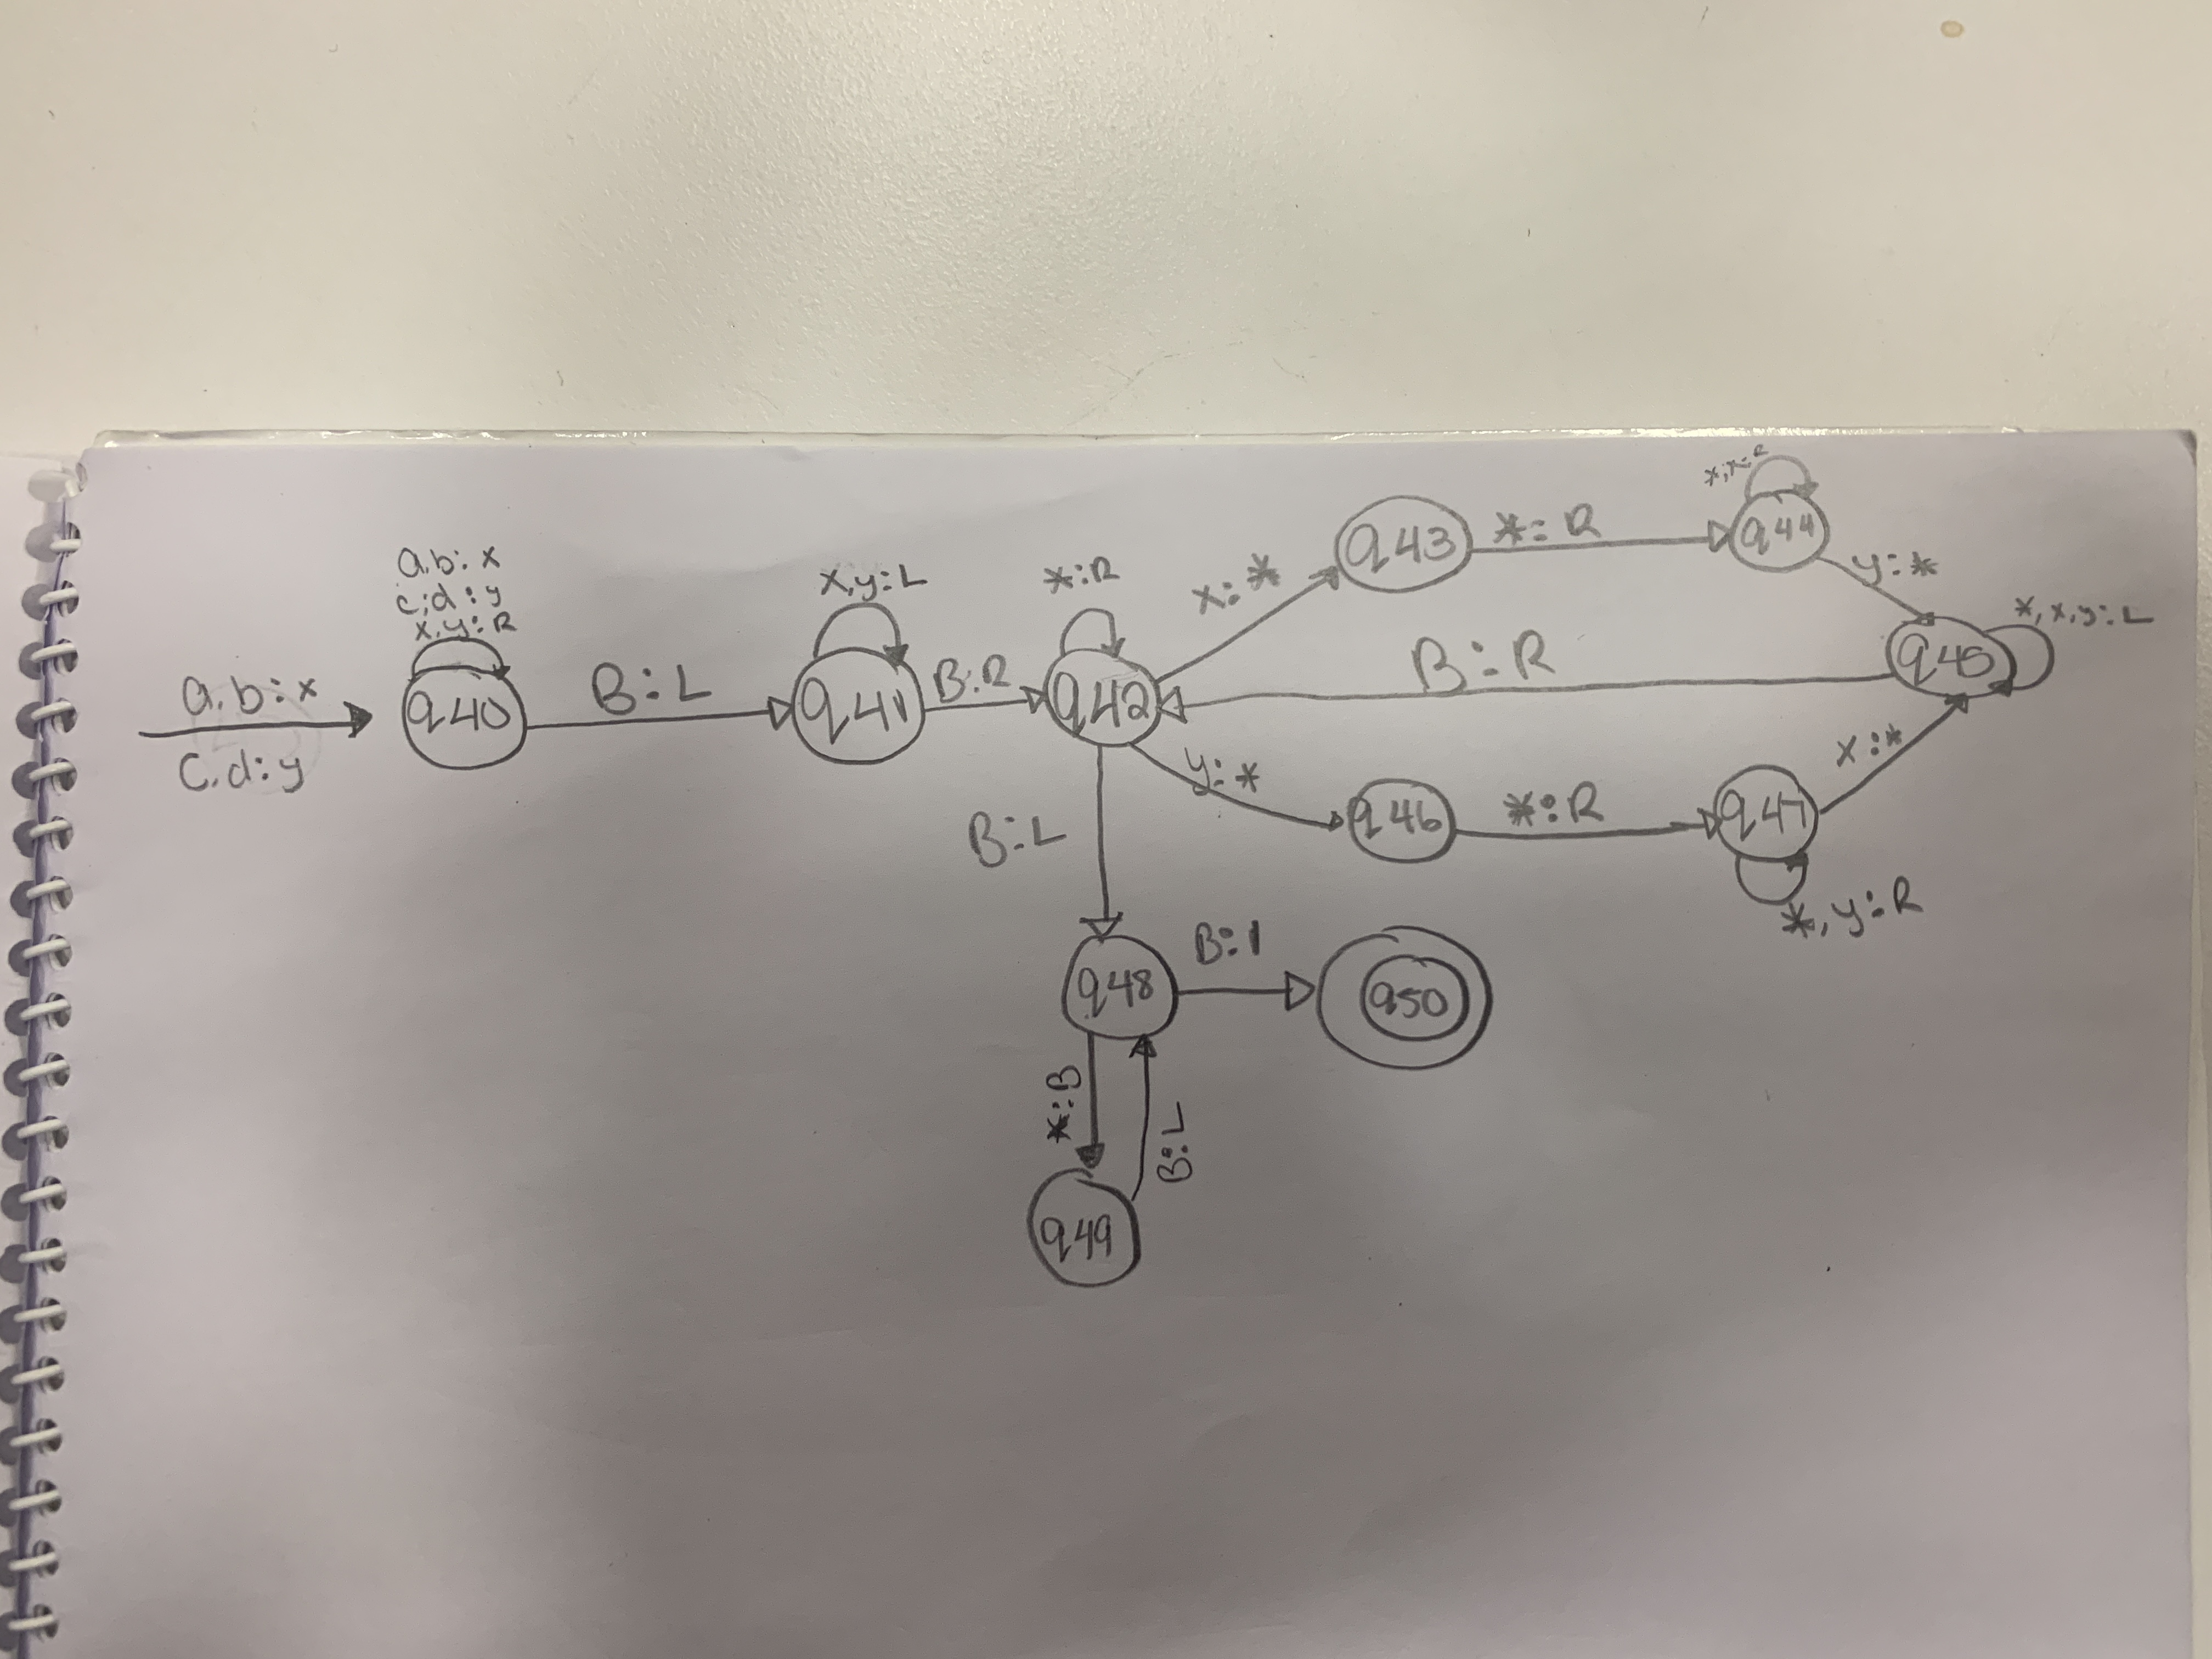 a.b:x
c.d:y
a.b:x
c;d:y
x,y:R
q40
B:L
x,y:L
q41
B:R
*:R
q42
x:*
q43
*:R
q44
y:*
*,x,y:L
q45
B:R
y:*
q46
*:R
q47
*,y:R
x:*
B:L
q48
B:1
q50
*:B
B:L
q49